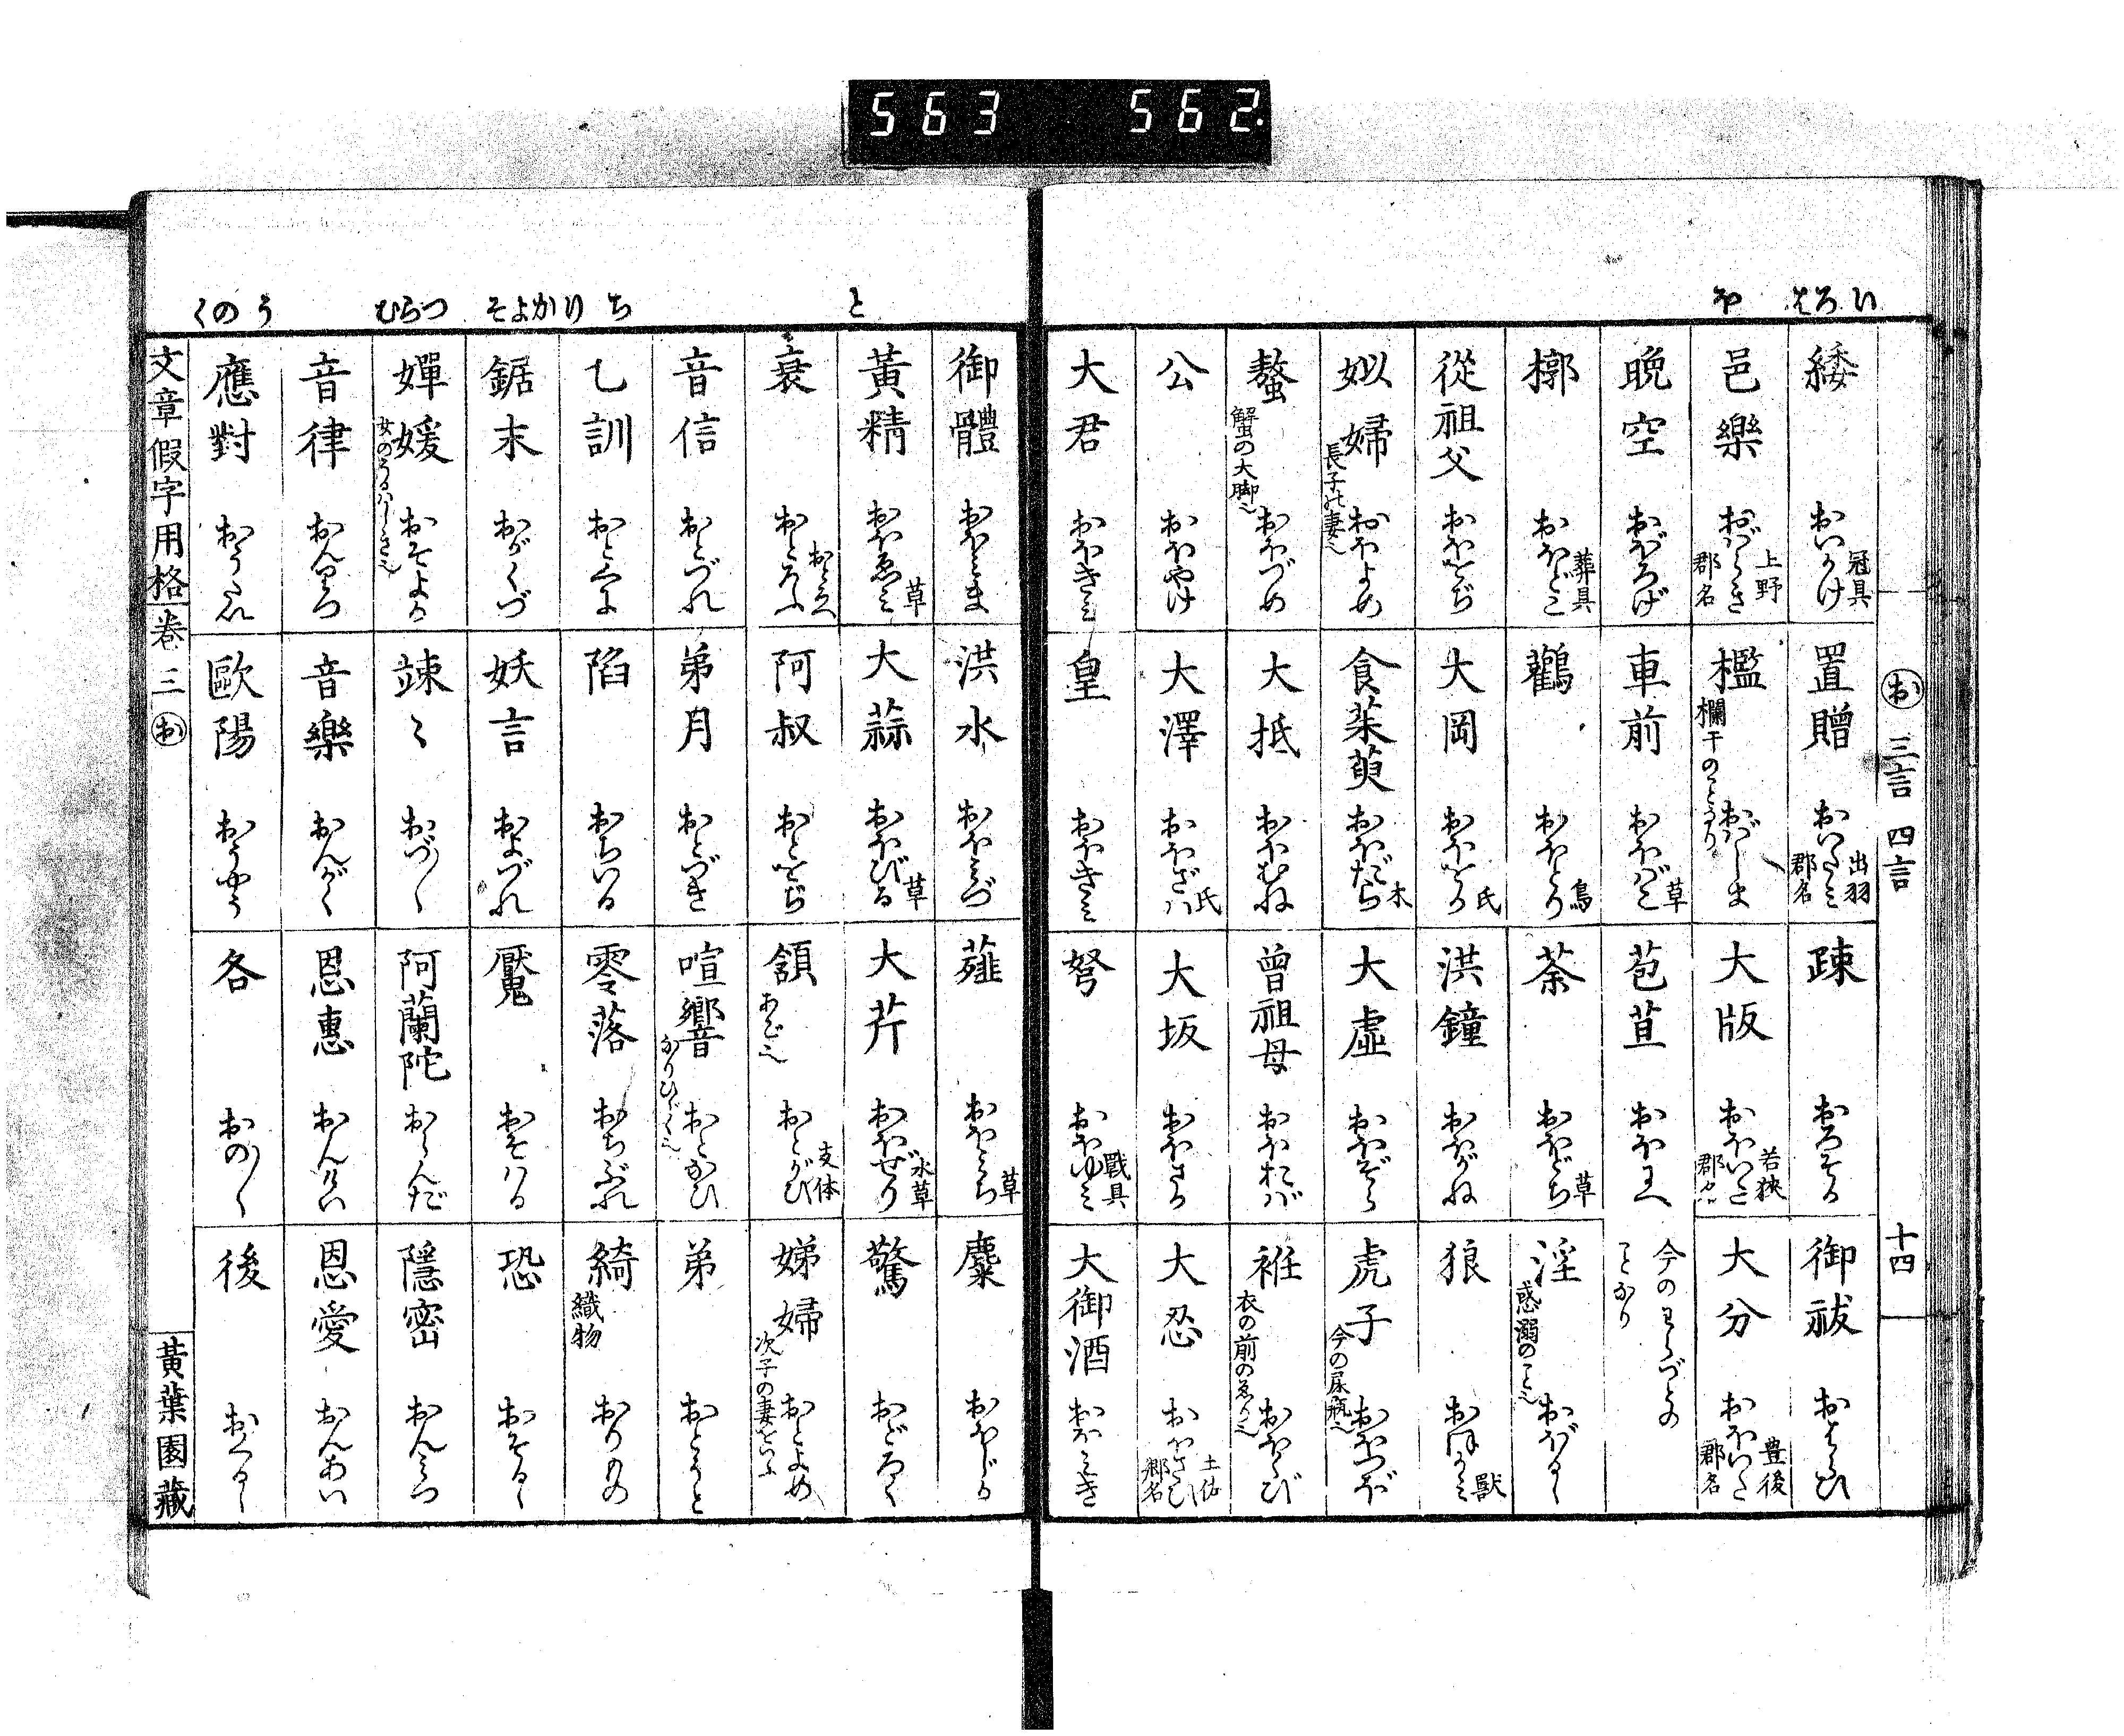 563 562
いろはほ
お 三言 四言 十四
緌 おいかけ 冠具
置贈 おいたみ 出羽郡名
疎 おろそか
御祓 おはらひ
邑樂 おはらき 上野郡名
檻 欄干のことなり おばしま
大版 おほいた 若狹郡名
大分 おほいた 豊後郡名
晩空 おぼろげ
車前 おほばこ 草
苞苴 おほにへ 今のわらづとのことなり
槨 おほどこ 葬具
鸛 おほとり 鳥
荼 おほどち 草
淫 惑溺のこと也 おぼるゝ
從祖父 おほをぢ
大岡 おほをか 氏
洪鐘 おほがね
狼 おほかみ 獸
姒婦 長子の妻也 およよめ
食茱萸 おほだら 木
大虛 おほぞら
虎子 今の尿瓶也 おほつぼ
螯 蟹の大脚也 おほづめ
大抵 おほむね
曾祖母 おほおば
袵 衣の前のゑり也 おほくび
公 おほやけ
大澤 おほざは 氏
大坂 おほさか
大忍 おほさと 土佐郷名
大君 おほきみ
皇 おほきみ
弩 おほゆみ 戰具
大御酒 おほみき
と ち りかよそ つらむ うのく
御體 おほみま
洪水 おほみづ
薤 おほみら 草
麋 おほじか
黄精 おほゑみ 草
大蒜 おほびる 草
大芹 おほぜり 水草
驚 おどろく
衰 おとろふ おとろへ
阿叔 おとをぢ
頷 あご也 おとがひ 支体
娣婦 次子の妻をいふ おとよめ
音信 おとづれ
弟月 おとづき
喧響 なりひゞく也 おとなひ
弟 おとうと
乙訓 おとくに
陷 おちいる
零落 おちぶれ
綺 織物 おりもの
鋸末 おがくづ
妖言 およづれ
魘 おそはる
恐 おそるゝ
嬋媛 女のうるはしき也 おそよか
竦〻 おづ〳〵
阿蘭陀 おらんだ
隱密 おんみつ
音律 おんりつ
音樂 おんがく
恩惠 おんけい
恩愛 おんあい
應對 おうたい
歐陽 おうやう
各 おの〳〵
後 おくるゝ
文章假字用格 卷三 お 黄葉園藏